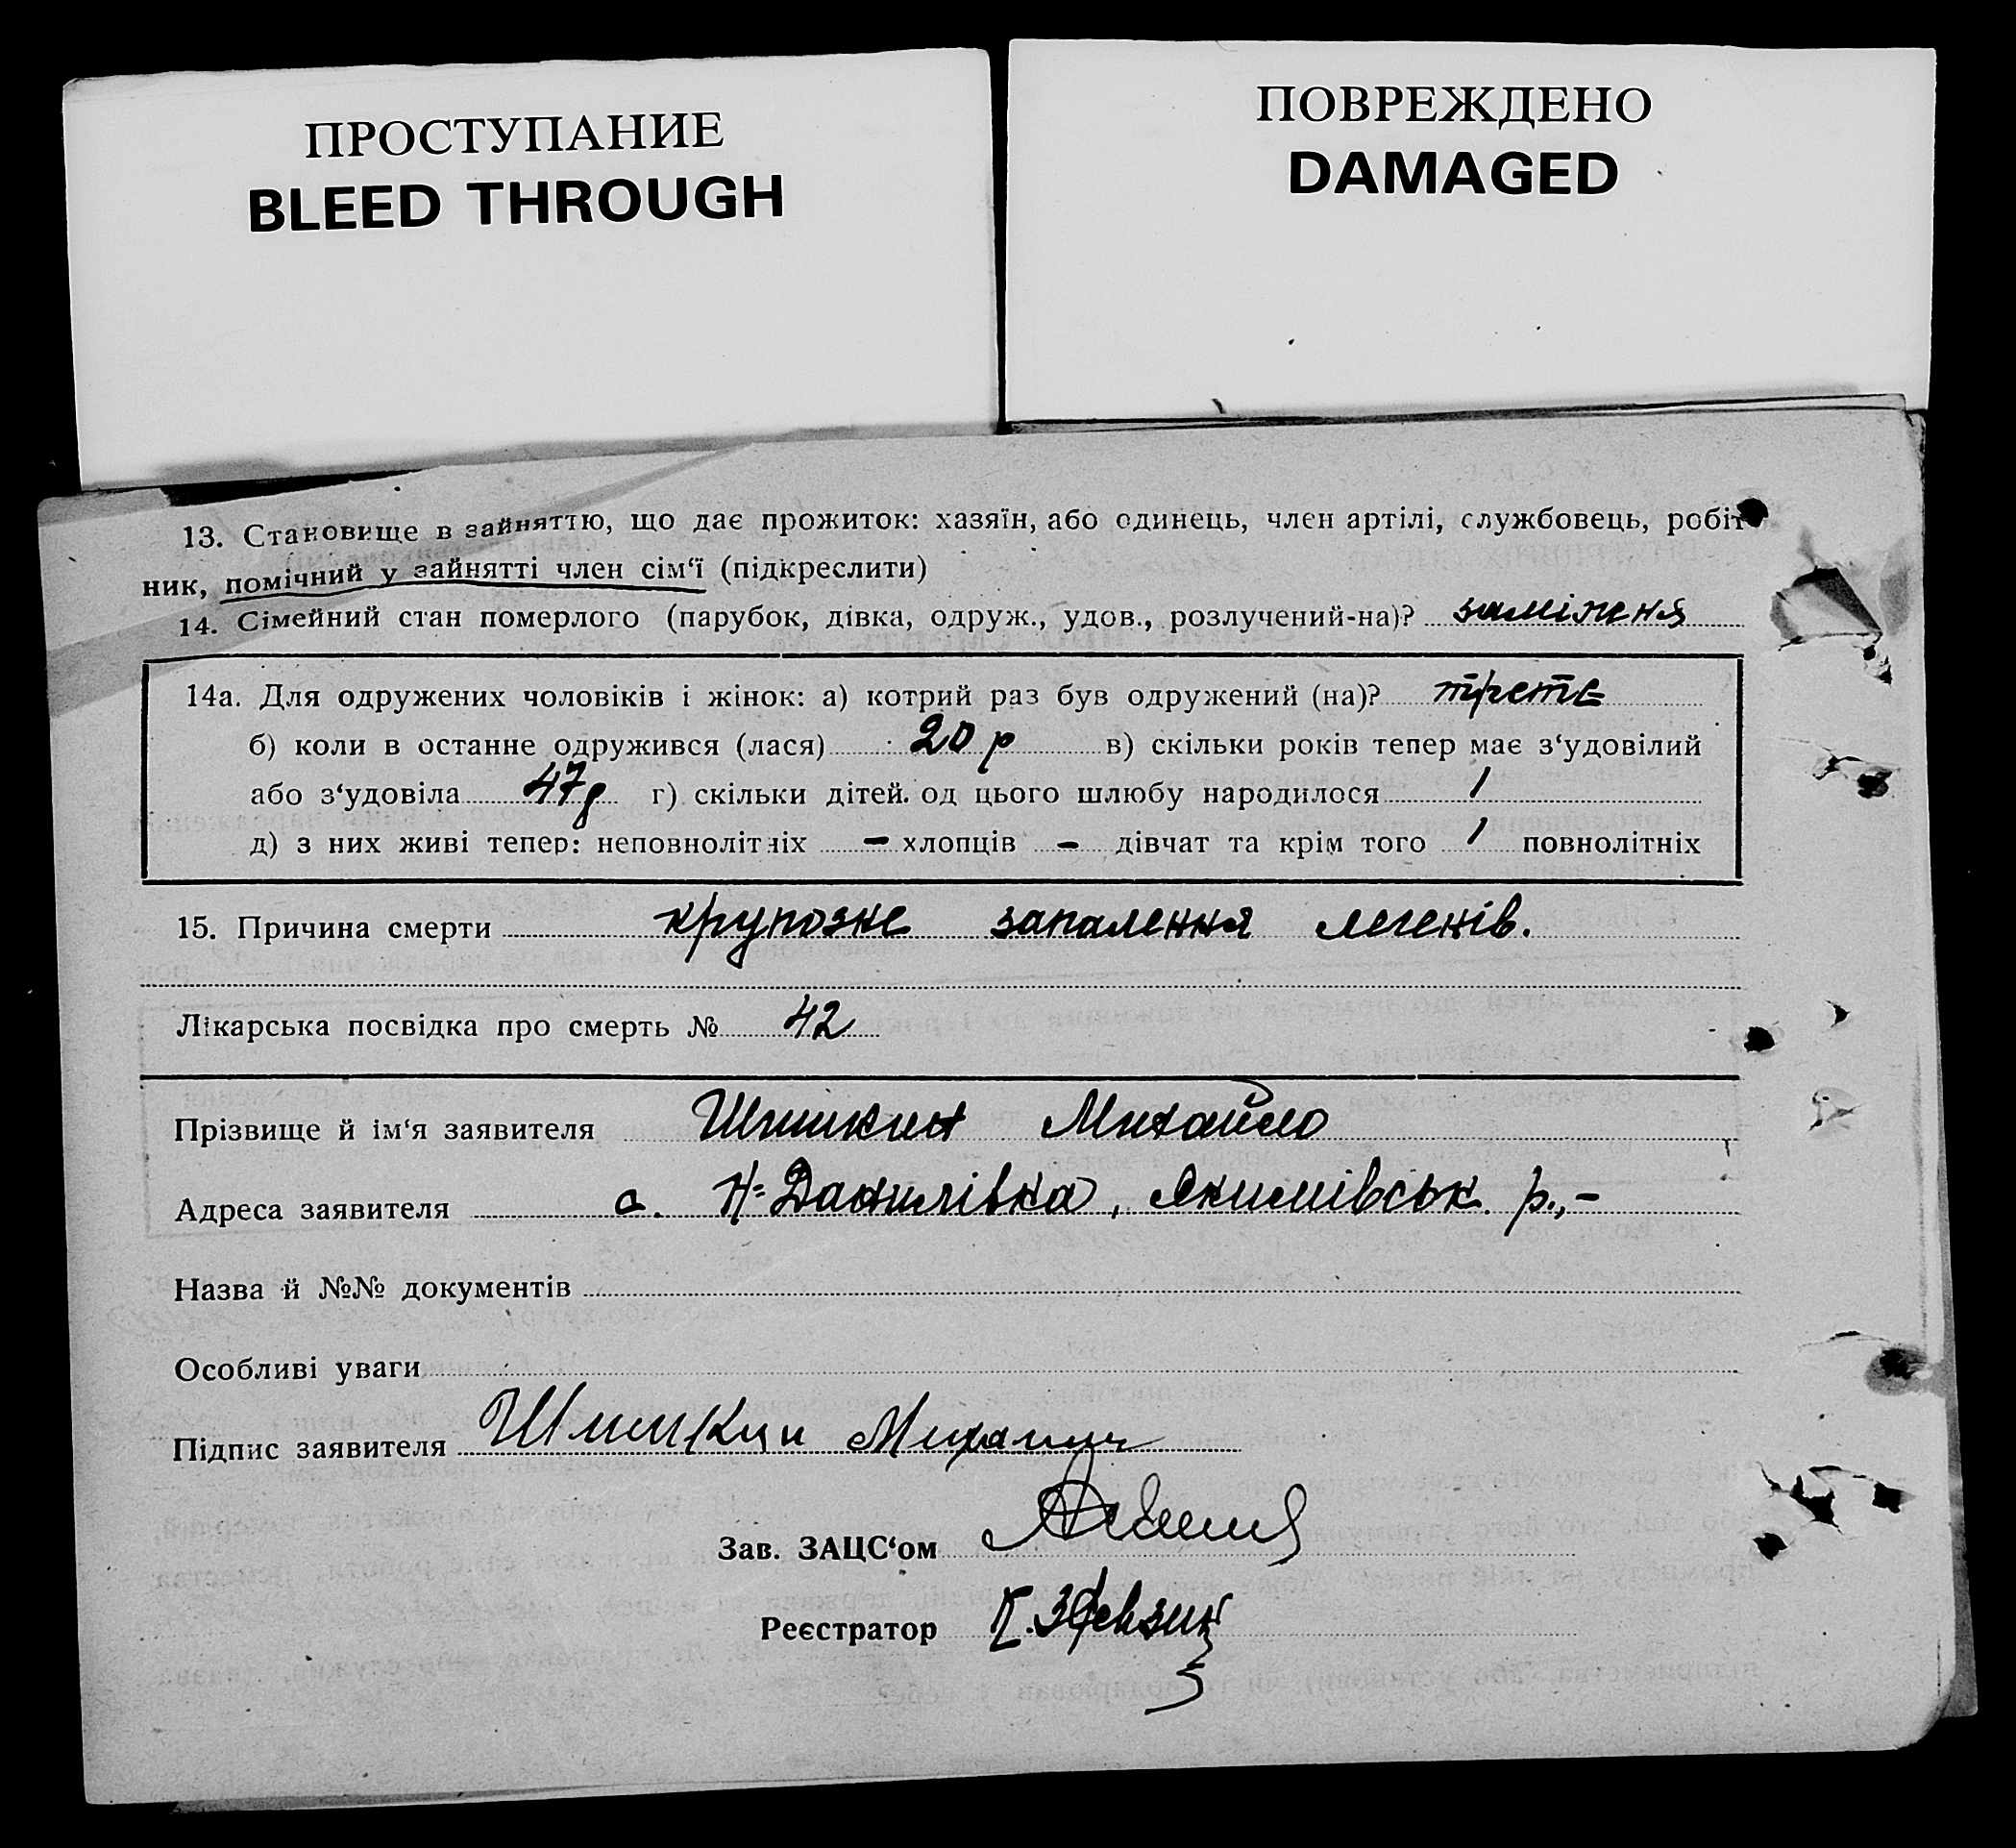 ПРОСТУПАНИЕ
BLEED THROUGH
ПОВРЕЖДЕНО
DAMAGED
13. Становище в зайняттю, що дає прожиток: хазяїн, або одинець, член артілі, службовець, робіт
ник, помічний у зайнятті член сім‘ї (підкреслити)
14. Сімейний стан померлого (парубок, дівка, одруж., удов., розлучений-на)? заміжня
14а. Для одружених чоловіків і жінок: а) котрий раз був одружений (на)? третє
б) коли в останне одружився (лася) 20 р в) скільки років тепер має з‘удовілий
або з‘удовіла 47 г) скільки дітей. од цього шлюбу народилося 1
д) з них живі тепер: неповнолітніх – хлопців – дівчат та крім того 1 повнолітніх
15. Причина смерти крупозне запалення легенів.
Лікарська посвідка про смерть № 42
Прізвище й ім‘я заявителя Шишкин Михайло
Адреса заявителя с. Н=Данилівка, Якимівськ. р.,–
Назва й №№ документів
Особливі уваги
Підпис заявителя Шишкин
Зав. ЗАЦС‘ом
Реєстратор